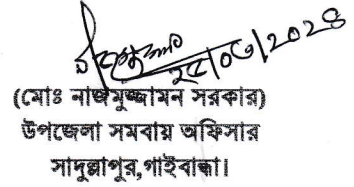 ২৫/০৩/২০২৪
(মোঃ নাজমুজ্জামন সরকার)
উপজেলা সমবায় অফিসার
সাদুল্লাপুর,গাইবান্ধা।